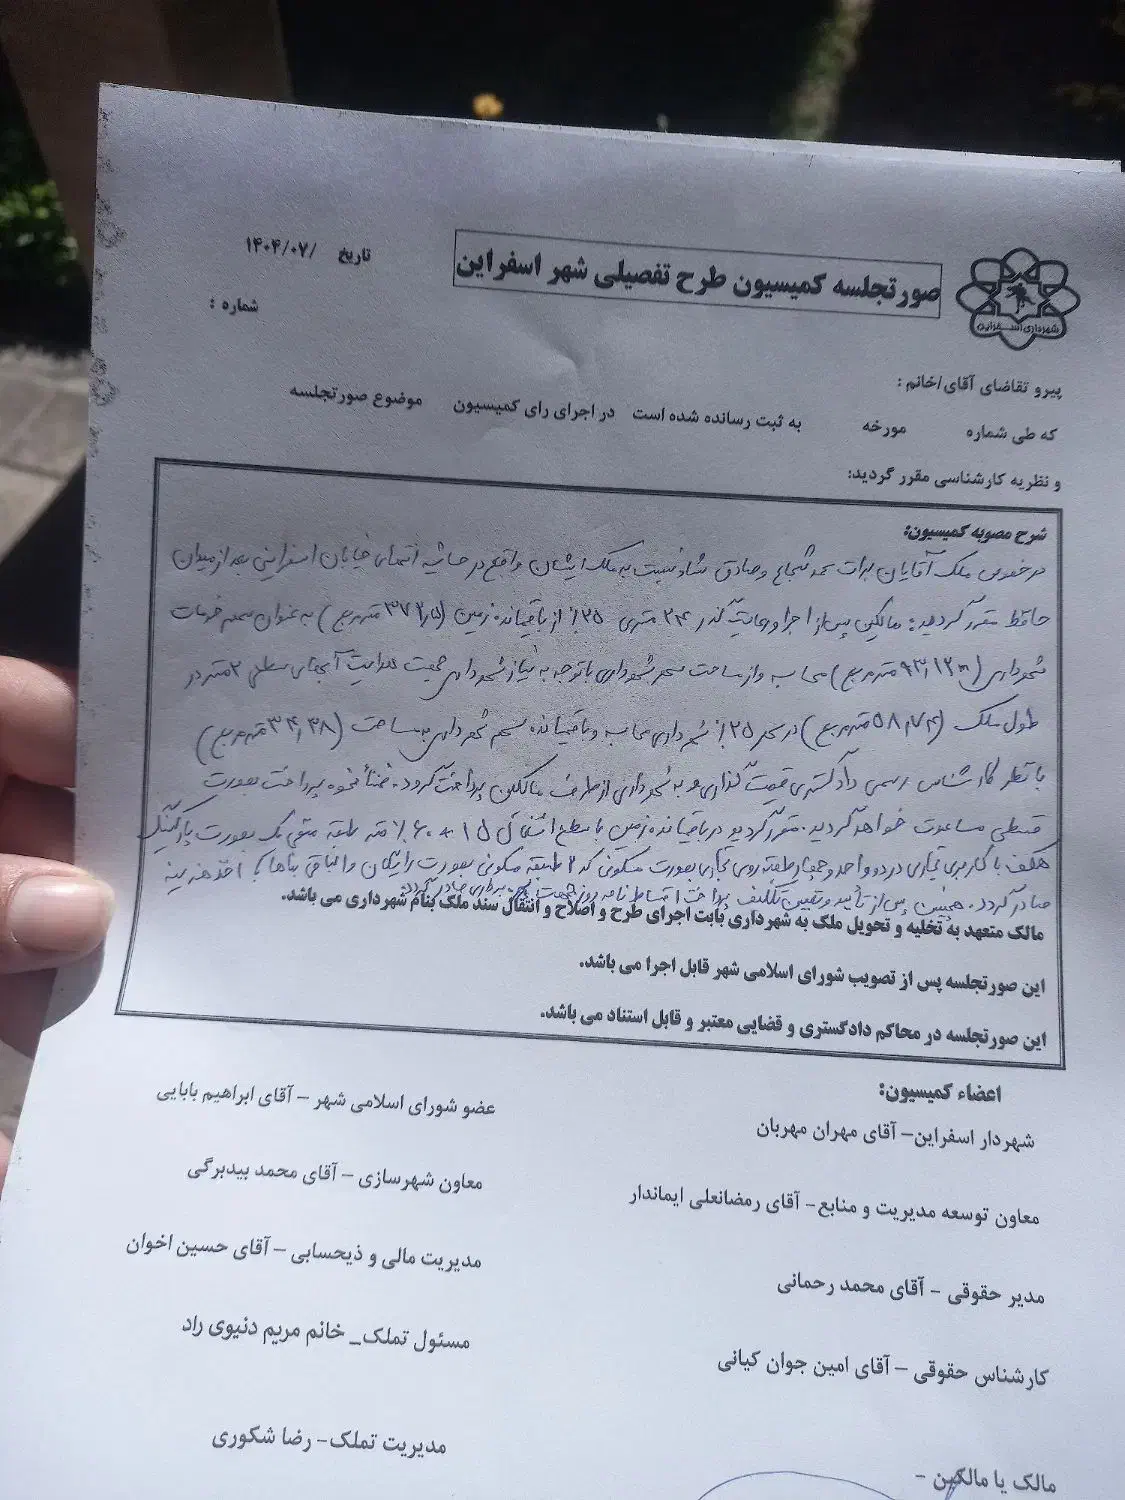 صورتجلسه کمیسیون طرح تفصیلی شهر اسفراین
تاریخ /۱۴۰۴/۰۷
شماره :
شهرداری اسفراین
پیرو تقاضای آقای/خانم :
که طی شماره مورخه به ثبت رسانده شده است در اجرای رای کمیسیون موضوع صورتجلسه
و نظریه کارشناسی مقرر گردید:
شرح مصوبه کمیسیون:
در خصوص ملک آقایان برات محمد شجاع و صادق شاد نسبت به ملک ایشان واقع در حاشیه انتهای خیابان اسفراینی بعد از میدان
حافظ مقرر گردید: مالکین پس از اجرا و رعایت گذر ۲۴ متری ۲۵٪ از باقیمانده زمین (۳۷۲٫۵ مترمربع) به عنوان سهم خدمات
شهرداری (۹۳٫۱۲ مترمربع) محاسبه و از مساحت سهم شهرداری با توجه به نیاز شهرداری جهت هدایت آبهای سطحی ۲ متر در
طول ملک (۵۸٫۷۴ مترمربع) در سهم ۲۵٪ شهرداری محاسبه و باقیمانده سهم شهرداری به مساحت (۳۴٫۳۸ مترمربع)
با نظر کارشناس رسمی دادگستری قیمت گذاری و به شهرداری از طرف مالکین پرداخت گردد. ضمناً نحوه پرداخت بصورت
قسطی مساعدت خواهد گردید. مقرر گردید در باقیمانده زمین با سطح اشغال ۱۵ + ۶۰٪ متر طبقه منفی یک بصورت پارکینگ
همکف با کاربری تجاری در دو واحد و چهار طبقه روی تجاری بصورت مسکونی که ۲ طبقه مسکونی بصورت رایگان و الباقی بناها با اخذ هزینه
صادر گردد. همچنین پس از تأیید و تعیین تکلیف پرداخت اقساط نامه روز جهت بهره برداری صادر گردد.
مالک متعهد به تخلیه و تحویل ملک به شهرداری بابت اجرای طرح و اصلاح و انتقال سند ملک بنام شهرداری می باشد.
این صورتجلسه پس از تصویب شورای اسلامی شهر قابل اجرا می باشد.
این صورتجلسه در محاکم دادگستری و قضایی معتبر و قابل استناد می باشد.
اعضاء کمیسیون:
شهردار اسفراین– آقای مهران مهربان
عضو شورای اسلامی شهر – آقای ابراهیم بابایی
معاون توسعه مدیریت و منابع– آقای رمضانعلی ایماندار
معاون شهرسازی – آقای محمد بیدبرگی
مدیر حقوقی – آقای محمد رحمانی
مدیریت مالی و ذیحسابی – آقای حسین اخوان
کارشناس حقوقی – آقای امین جوان کیانی
مسئول تملک_ خانم مریم دنیوی راد
مدیریت تملک– رضا شکوری
مالک یا مالکین –